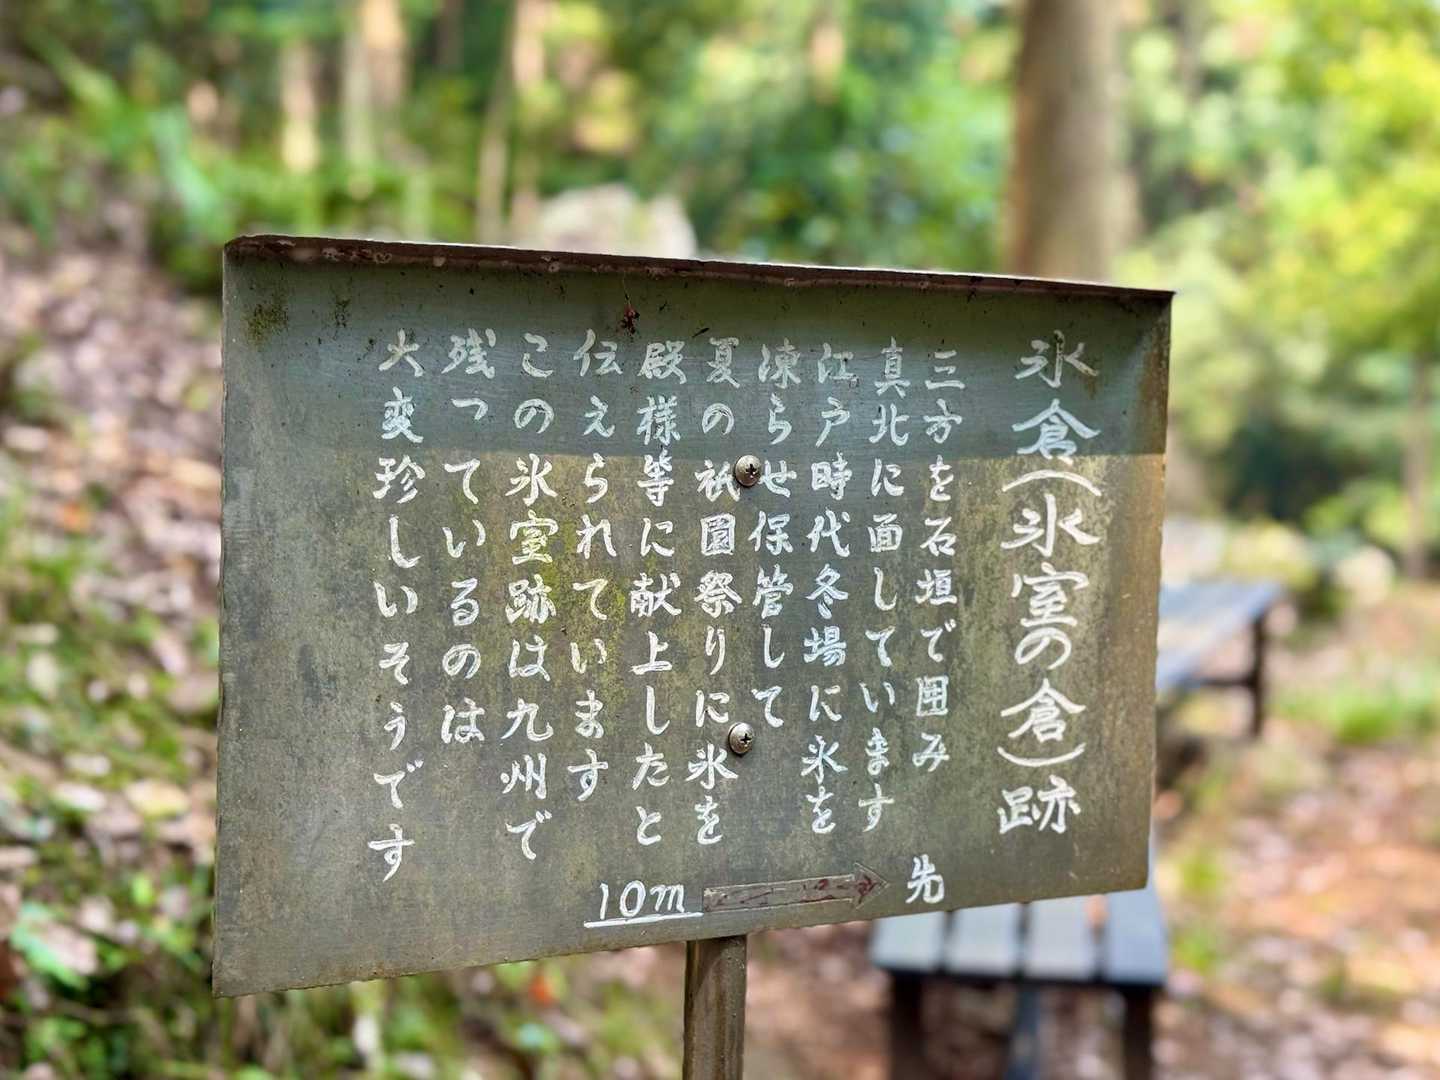 氷倉(氷室の倉)跡
三方を石垣で囲み
真北に面しています
江戸時代冬場に氷を
凍らせ保管して
夏の祇園祭りに氷を
殿様等に献上したと
伝えられています
この氷室跡は九州で
残っているのは
大変珍しいそうです
10m
先